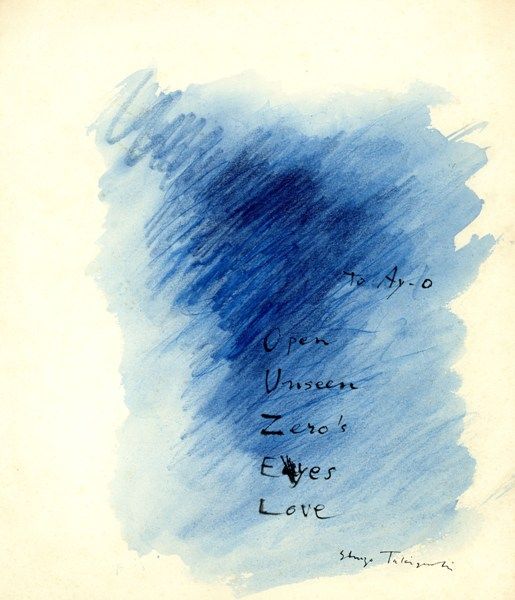 To Ay-O
Open
Unseen
Zero's
Eyes
Love
Shuzo Takiguchi